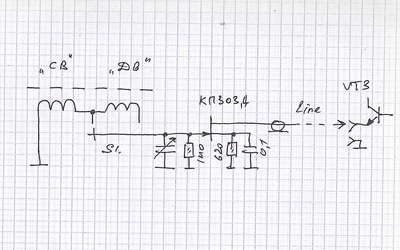 „СВ" „ДВ"
КП303А
Line
VT3
S1.
1м0
620
0,1